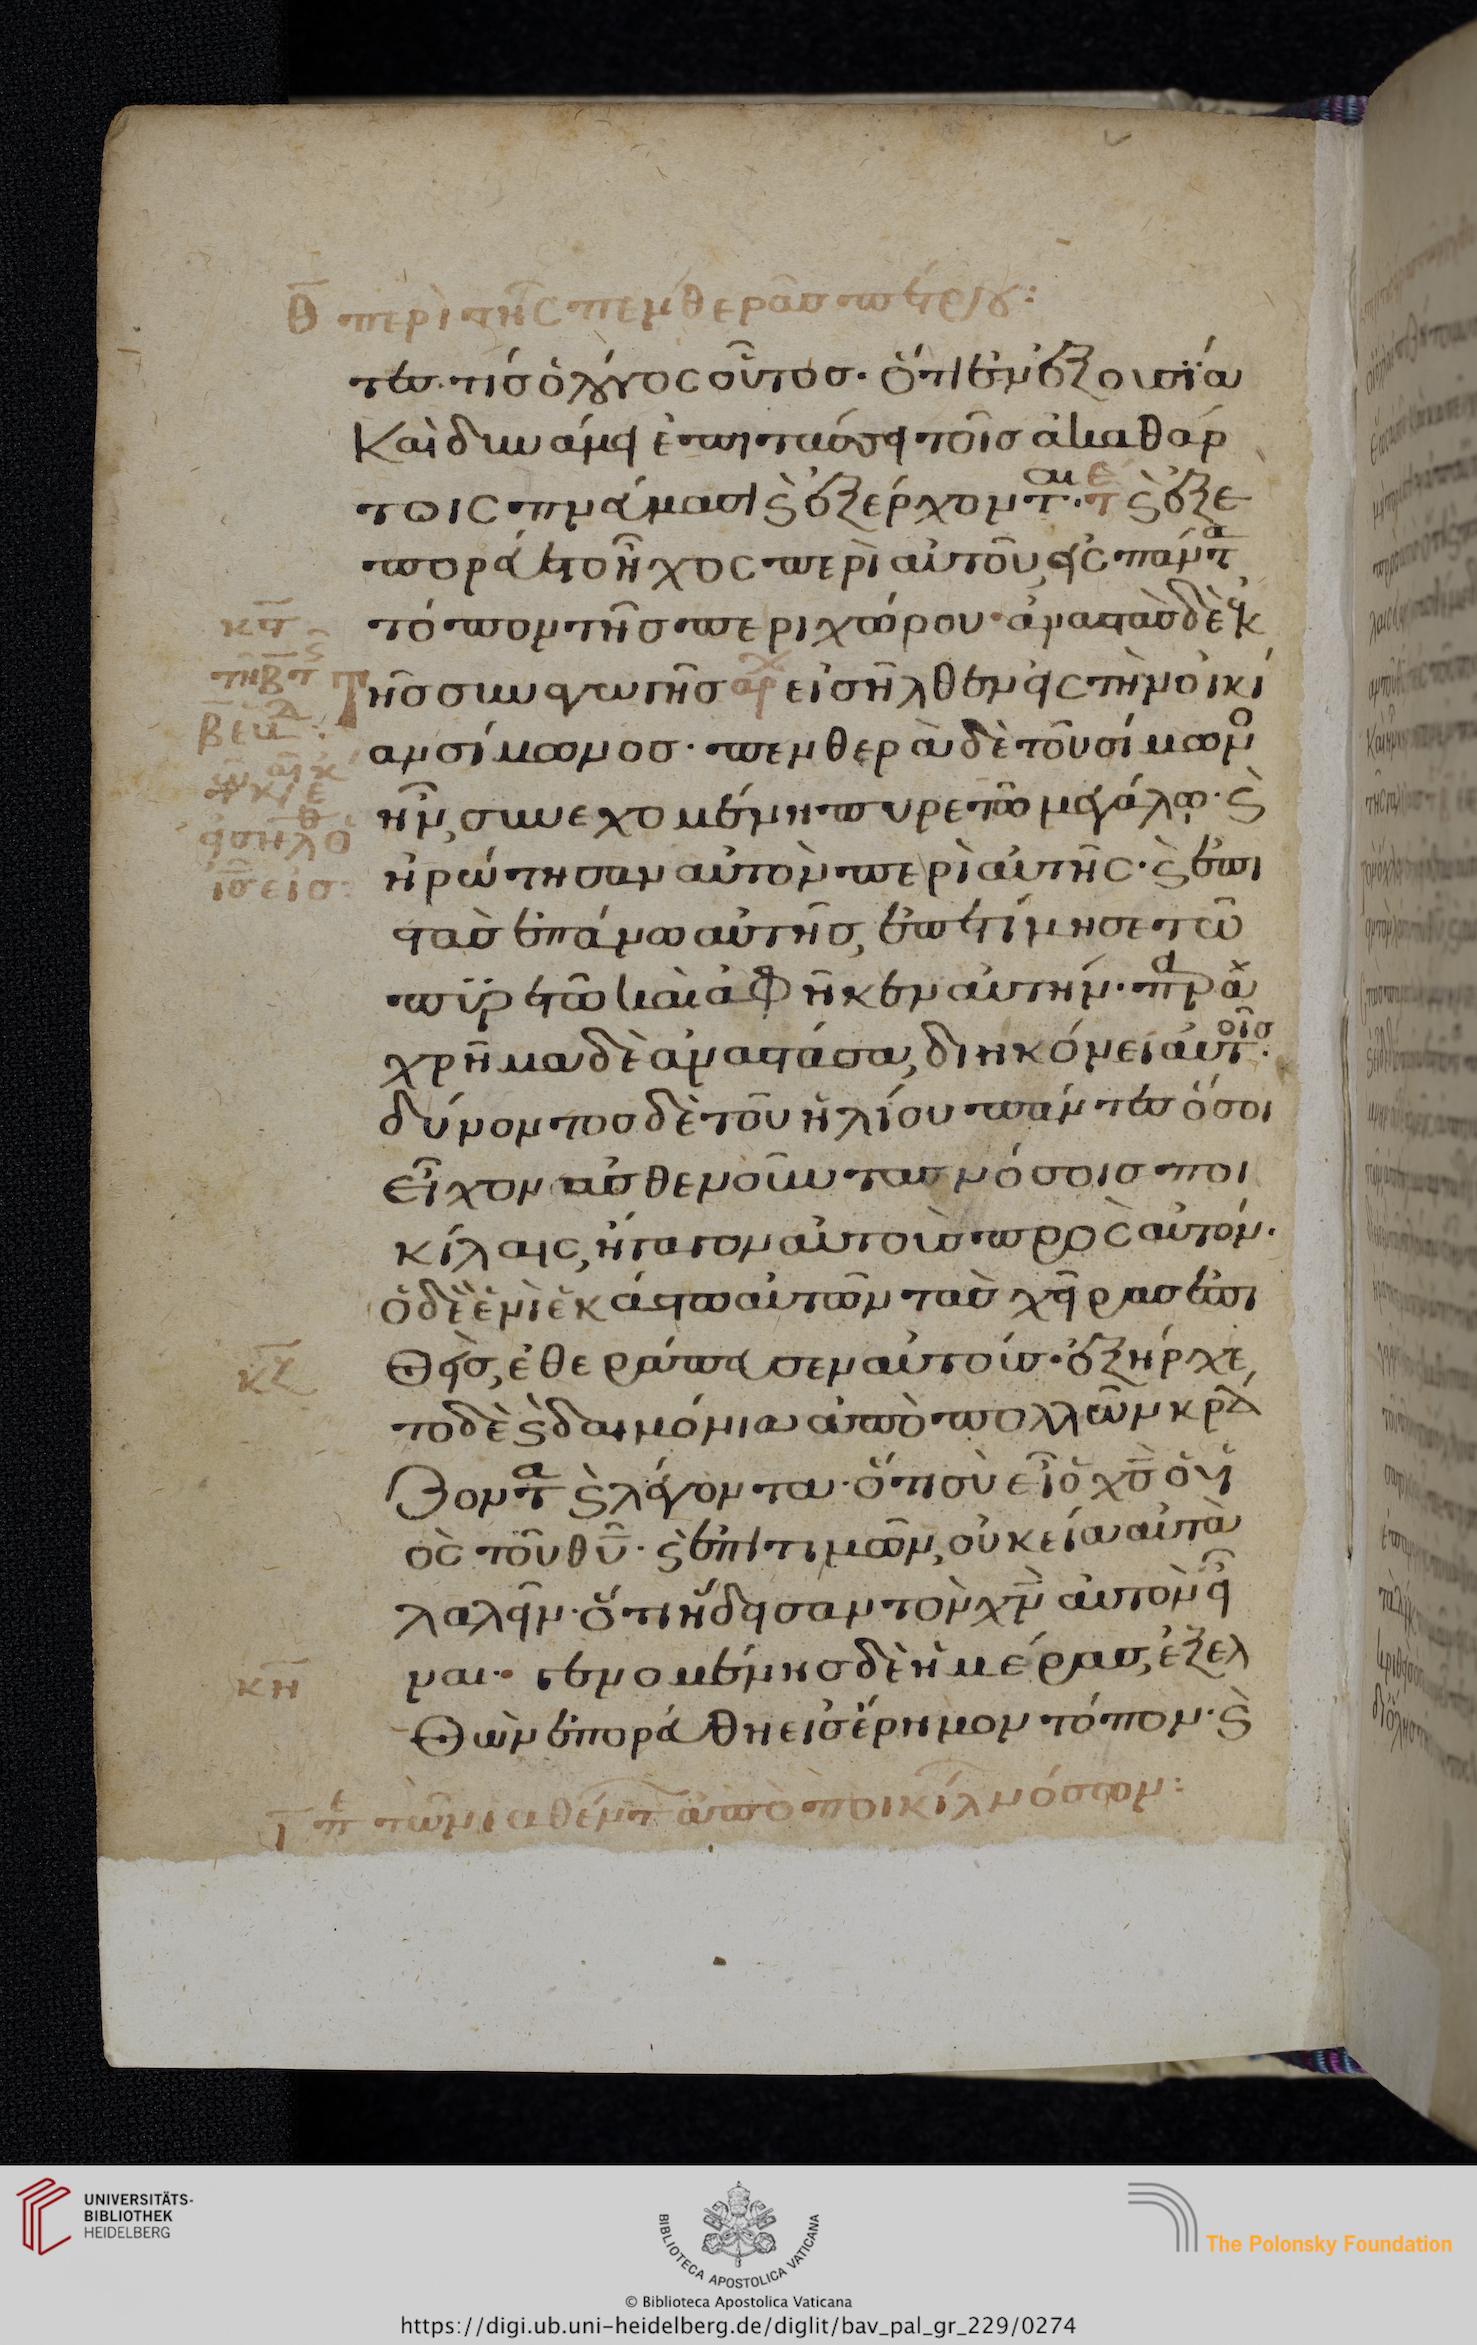 θ περὶ τῆς πενθερᾶς πέτρου:
τες· τίς ὁ λόγος οὗτος· ὅτι ἐν ἐξουσία
καὶ δυνάμει ἐπιτάσσει τοῖς ἀκαθάρ
τοις πνεύμασι ϗ ἐξέρχοντ(αι)· τε ϗ ἐξε
πορεύετο ἦχος περὶ αὐτοῦ, εἰς πάντα
τόπον τῆς περιχώρου· ἀναστὰς δὲ ἐκ
τῆς συναγωγῆς αρχ εἰσῆλθεν εἰς τὴν οἰκί
αν σίμωνος· πενθερὰ δὲ τοῦ σίμωνο
ἦν, συνεχομένη πυρετῶ μεγάλῳ· ϗ
ἠρώτησαν αὐτὸν περὶ αὐτῆς· ϗ ἐπι
στὰς ἐπάνω αὐτῆς, ἐπετίμησε τῶ
πυρετῶ καὶ ἀφῆκεν αὐτήν· παραχ
χρῆμα δὲ ἀναστάσα, διηκόνει αὐτοῖς·
δύνοντος δὲ τοῦ ἡλίου πάντες ὅσοι
εἶχον ἀσθενοῦντας νόσοις ποι
κίλαις, ἤγαγον αὐτοὺς πρὸς αὐτόν·
ὁ δὲ ἑνὶ ἑκάστω αὐτῶν τὰς χεῖρας ἐπι
θεὶς, ἐθεράπευσεν αὐτούς· ἐξήρχε
το δὲ ϗ δαιμόνια ἀπὸ πολλῶν κραυ
γοντα ϗ λέγοντα· ὅτι σὺ εἶ ὁ χς ὁ υἱ
ὸς τοῦ θυ· ϗ ἐπιτιμῶν, οὐκ εἴα αὐτὰ
λαλεῖν· ὅτι ἤδεισαν τὸν χν αὐτὸν εἶ
ναι· γενομένης δὲ ἡμέρας, ἐξελ
θὼν ἐπορεύθη εἰς ἔρημον τόπον· ϗ
ι πε τῶν ἰαθέντ ἀπὸ ποικίλ νόσων:
κϛ
κζ
κη
UNIVERSITÄTS-
BIBLIOTHEK
HEIDELBERG
BIBLIOTECA APOSTOLICA VATICANA
The Polonsky Foundation
© Biblioteca Apostolica Vaticana
https://digi.ub.uni-heidelberg.de/diglit/bav_pal_gr_229/0274